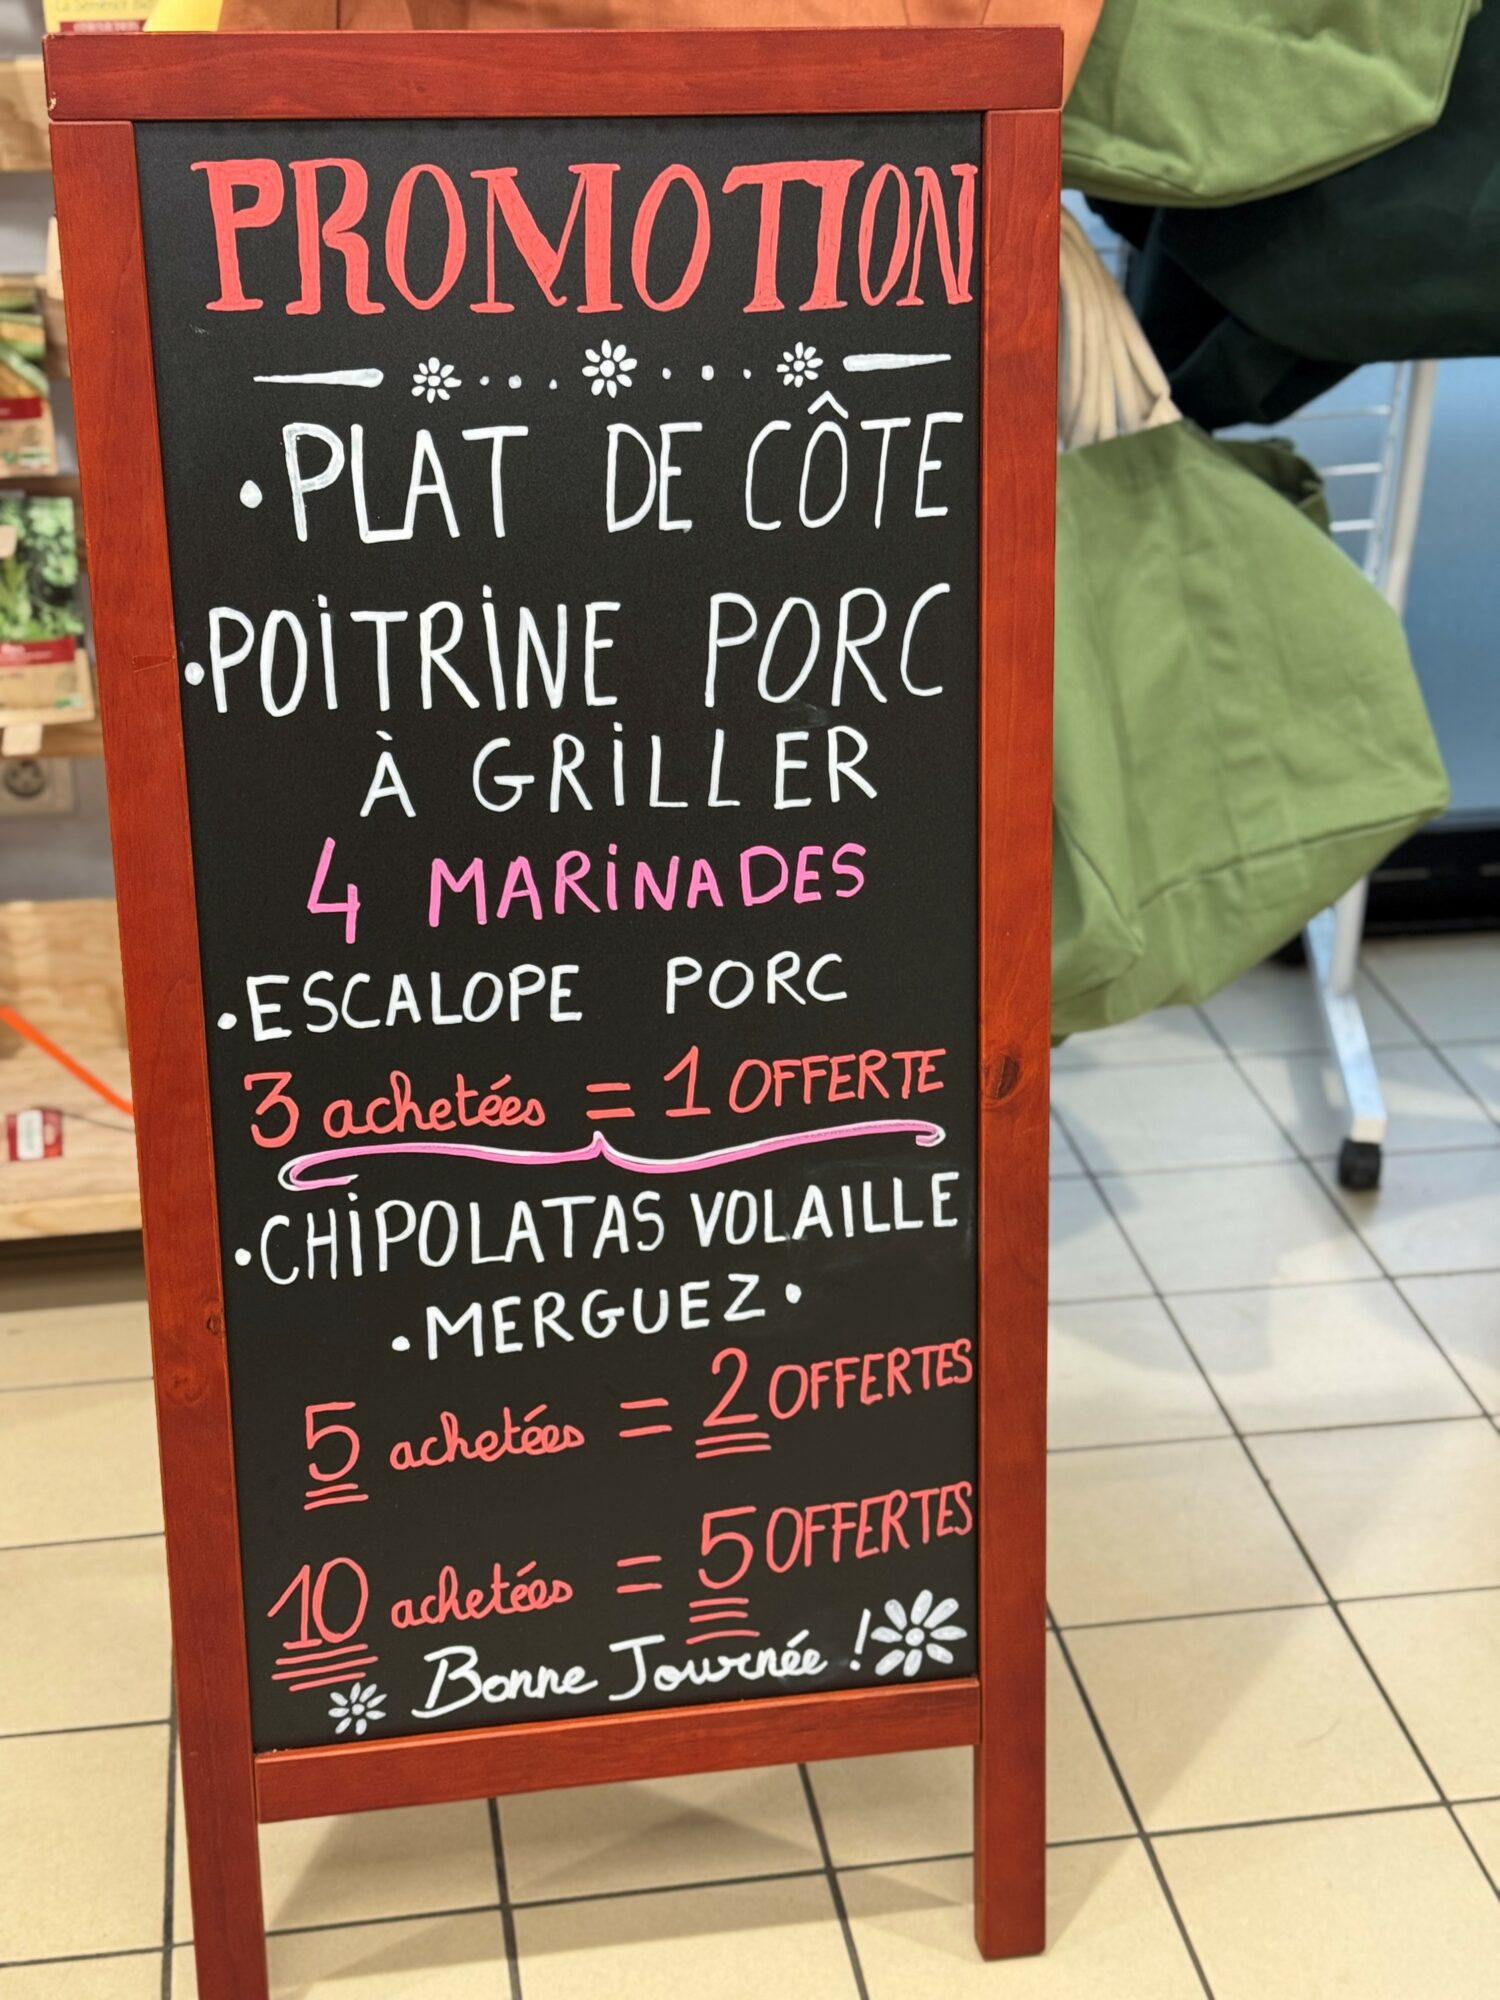 La Semence Bio
PROMOTION
• PLAT DE CÔTE
• POITRINE PORC
À GRILLER
4 MARINADES
• ESCALOPE PORC
3 achetées = 1 OFFERTE
• CHIPOLATAS VOLAILLE
• MERGUEZ •
5 achetées = 2 OFFERTES
10 achetées = 5 OFFERTES
Bonne Journée !